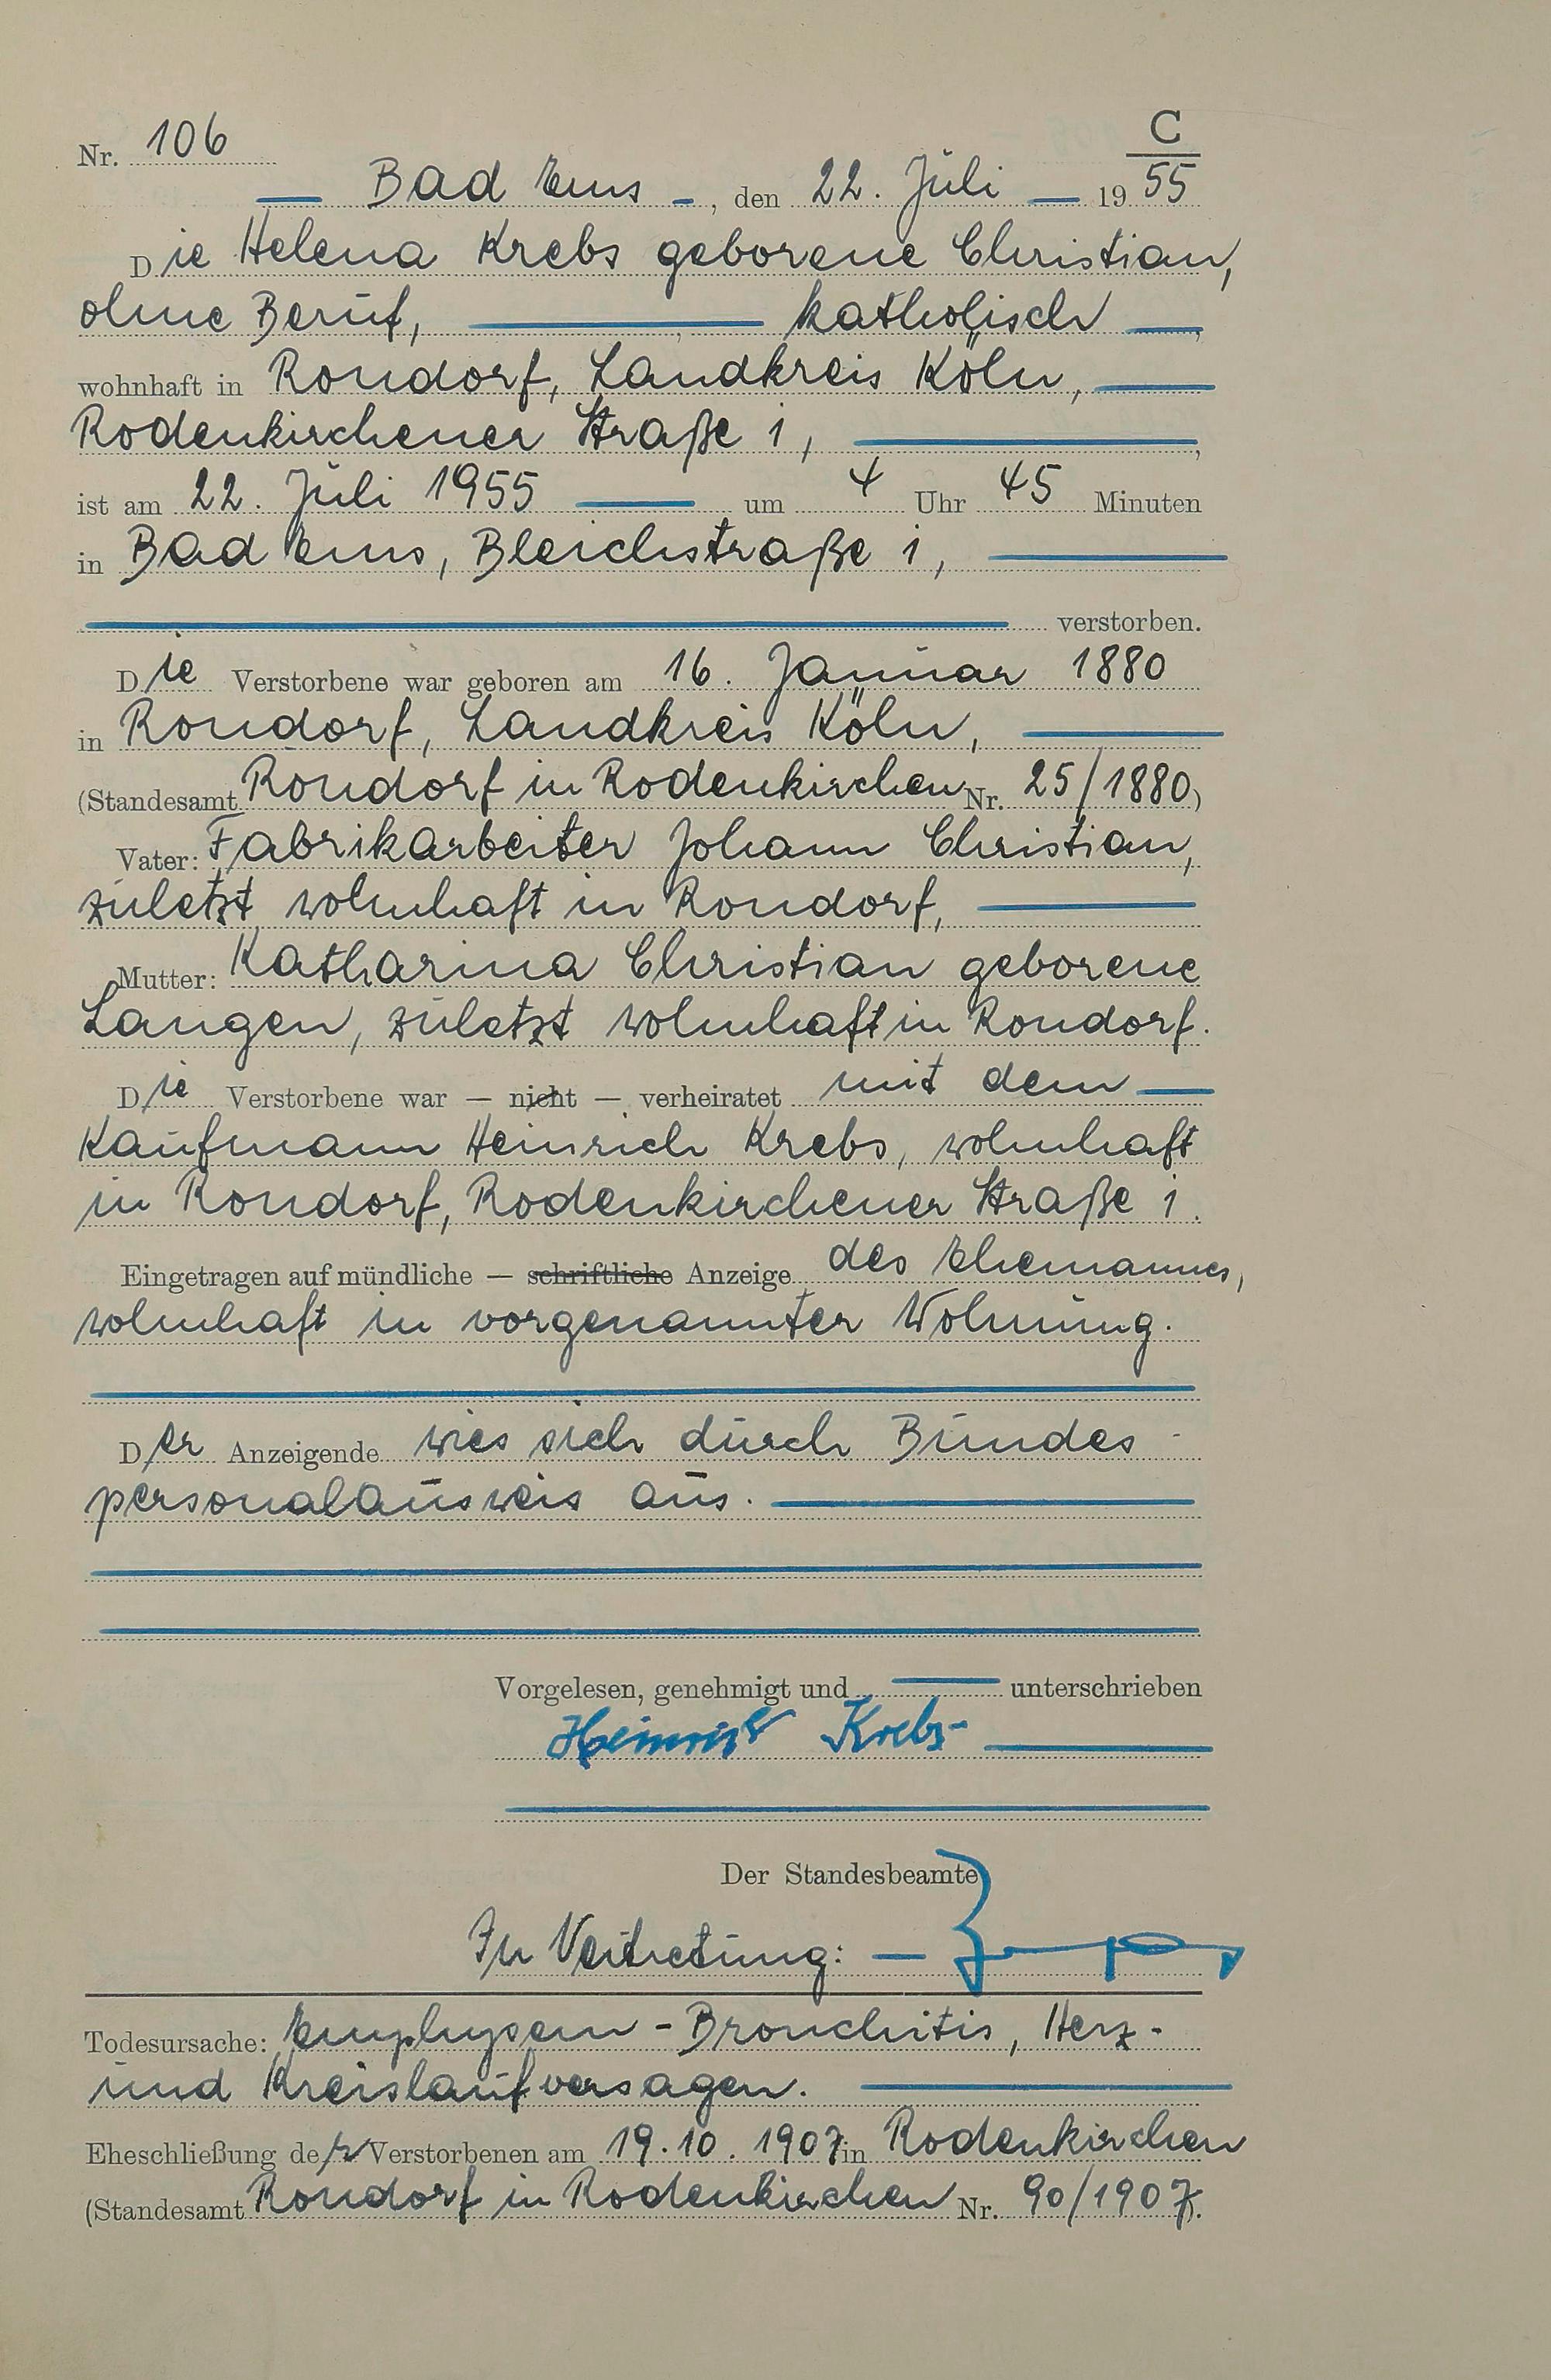 C
Nr. 106
Bad Ems -, den 22. Juli — 19 55
Die Helena Krebs geborene Christian,
ohne Beruf, — katholisch —,
wohnhaft in Rondorf, Landkreis Köln, —
Rodenkirchener Straße 1, —,
ist am 22. Juli 1955 — um 4 Uhr 45 Minuten
in Bad Ems, Bleichstraße 1, —
verstorben.
Die Verstorbene war geboren am 16. Januar 1880
in Rondorf, Landkreis Köln, —
(Standesamt Rondorf in Rodenkirchen Nr. 25/1880)
Vater: Fabrikarbeiter Johann Christian,
zuletzt wohnhaft in Rondorf, —
Mutter: Katharina Christian geborene
Langen, zuletzt wohnhaft in Rondorf.
Die Verstorbene war — nicht — verheiratet mit dem —
Kaufmann Heinrich Krebs, wohnhaft
in Rondorf, Rodenkirchener Straße 1.
Eingetragen auf mündliche — schriftliche Anzeige des Ehemannes,
wohnhaft in vorgenannter Wohnung.
Der Anzeigende wies sich durch Bundes-
personalausweis aus. —
Vorgelesen, genehmigt und — unterschrieben
Heinrich Krebs —
Der Standesbeamte
In Vertretung: —
Todesursache: Emphysem - Bronchitis, Herz-
und Kreislaufversagen. —
Eheschließung der Verstorbenen am 19.10.1907 in Rodenkirchen
(Standesamt Rondorf in Rodenkirchen Nr. 90/1907).